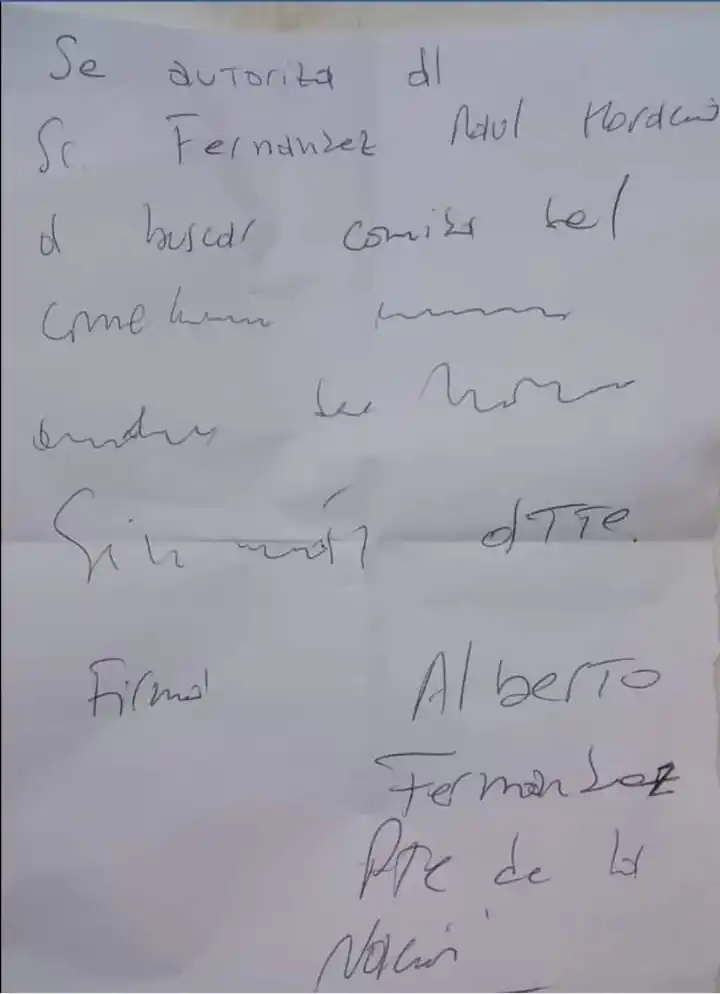 Se autoriza al
Sr. Fernandez Raul Horacio
a buscar comida del
Sin más atte.
Firma Alberto
Fernandez
Pte de la
Nación